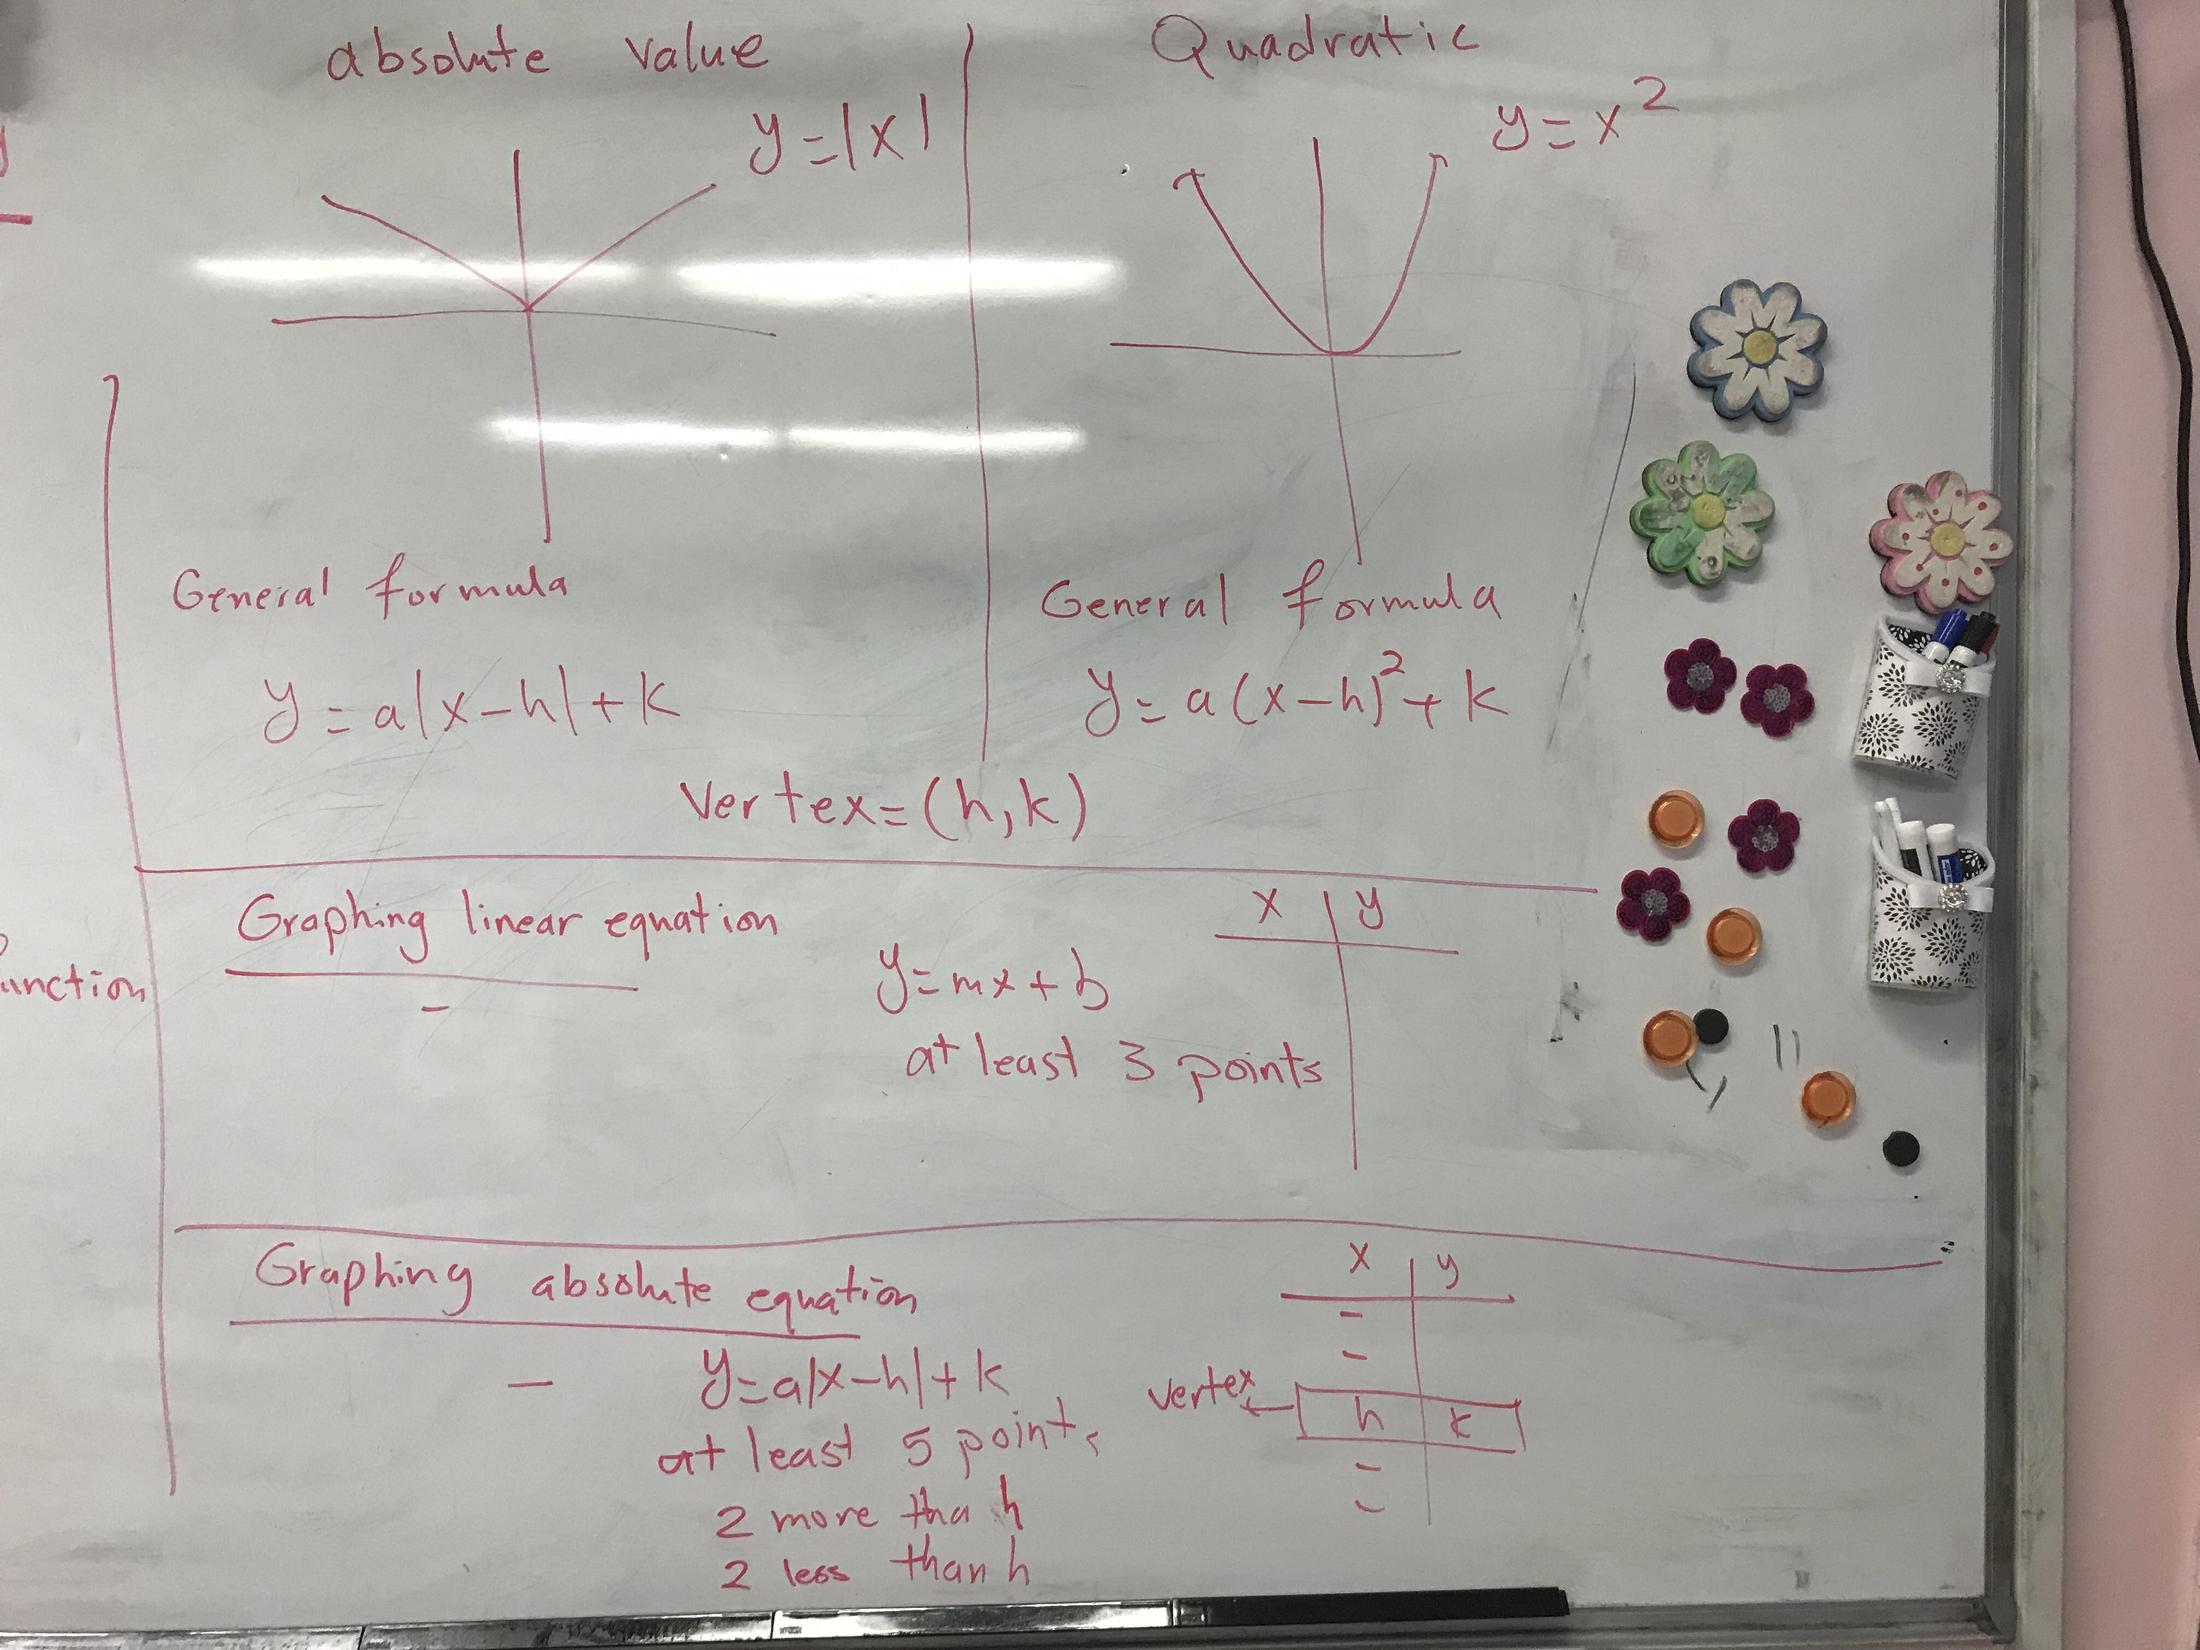 absolute value
y=|x|
General formula
y=a|x-h|+k
Quadratic
y=x²
General formula
y=a(x-h)²+k
Vertex=(h,k)
unction
Graphing linear equation
-
y=mx+b
at least 3 points
x y
Graphing absolute equation
-
y=a|x-h|+k
at least 5 points
2 more tha h
2 less than h
x y
-
-
vertex h k
-
-